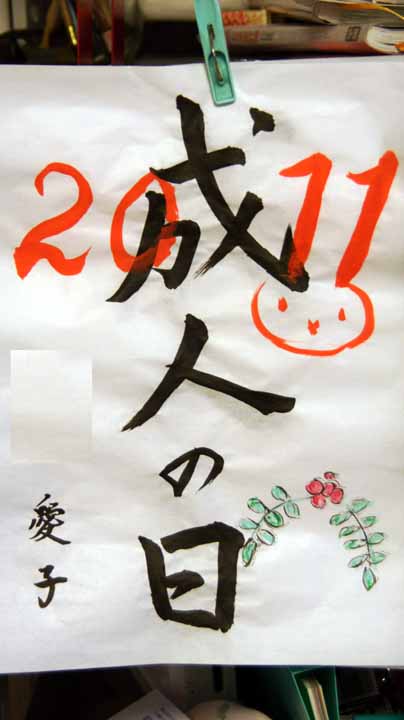 2011
成人の日
愛子